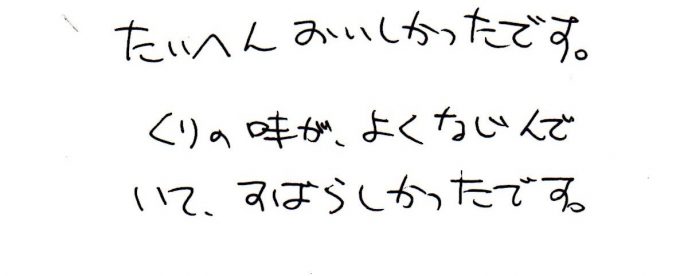 たいへんおいしかったです。
くりの味が、よくなじんで
いて、すばらしかったです。